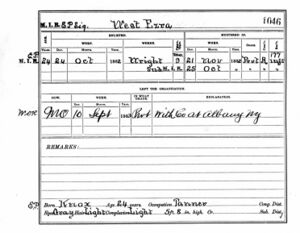 M.I.R. S.P. Sig. West Ezra 1046
ENLISTED. MUSTERED IN.
AGE. WHEN. WHERE. WHEN.
S.P. 177
M.I.R. 24 24 Oct 1862 Wright 9 21 Nov 1862 Pvt
25 Oct
LEFT THE ORGANIZATION.
HOW. WHEN. EXPLANATION.
M.O.R. MO 10 Sept 1863 Pvt With Co at Albany NY
REMARKS:
S.P. Born Knox Age 24 years Occupation Farmer Cong. Dist.
Eyes Gray Hair Light Complexion Light 5 ft. 8 in. high Co. Sub. Dist.